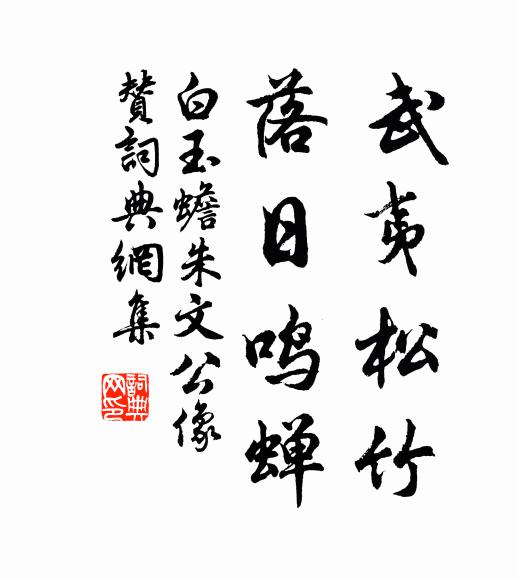 武夷松竹
落日鸣蝉
白玉蟾朱文公像
赞詞典網集
詞典网印